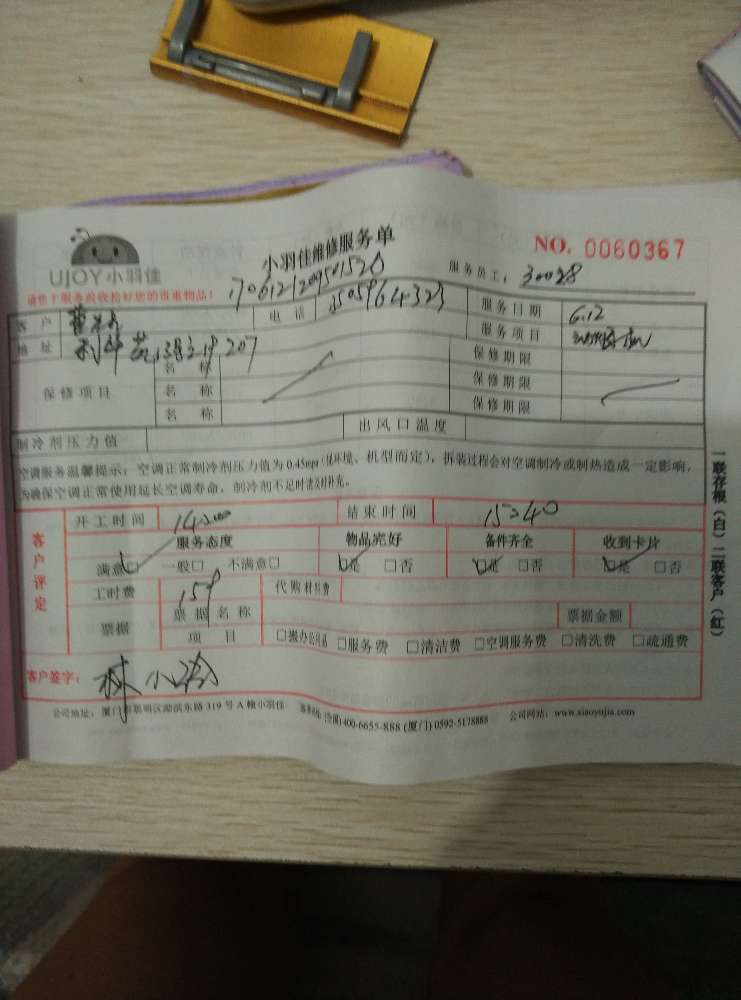 UJOY小羽佳
小羽佳维修服务单
NO. 0060367
请您于服务前收拾好您的贵重物品！
服务员工：30028
客户 电话 服务日期 6.12
地址 服务项目
保修项目 名称 保修期限
名称 保修期限
名称 保修期限
制冷剂压力值 出风口温度
空调服务温馨提示：空调正常制冷剂压力值为0.45mpa（视环境、机型而定），拆装过程会对空调制冷或制热造成一定影响，
为确保空调正常使用延长空调寿命，制冷剂不足时请及时补充。
客户评定
开工时间 结束时间 15:40
服务态度 物品完好 备件齐全 收到卡片
满意□ 一般□ 不满意□ □是 □否 □是 □否 □是 □否
工时费 159 代购材料费
票据 票据名称 票据金额
项目 □搬办公用品 □服务费 □清洁费 □空调服务费 □清洗费 □疏通费
客户签字：
公司地址：厦门市思明区湖滨东路319号A幢小羽佳 (全国)400-6655-888 (厦门)0592-5178888 公司网站：www.xiaoyujia.com
一联存根（白）二联客户（红）